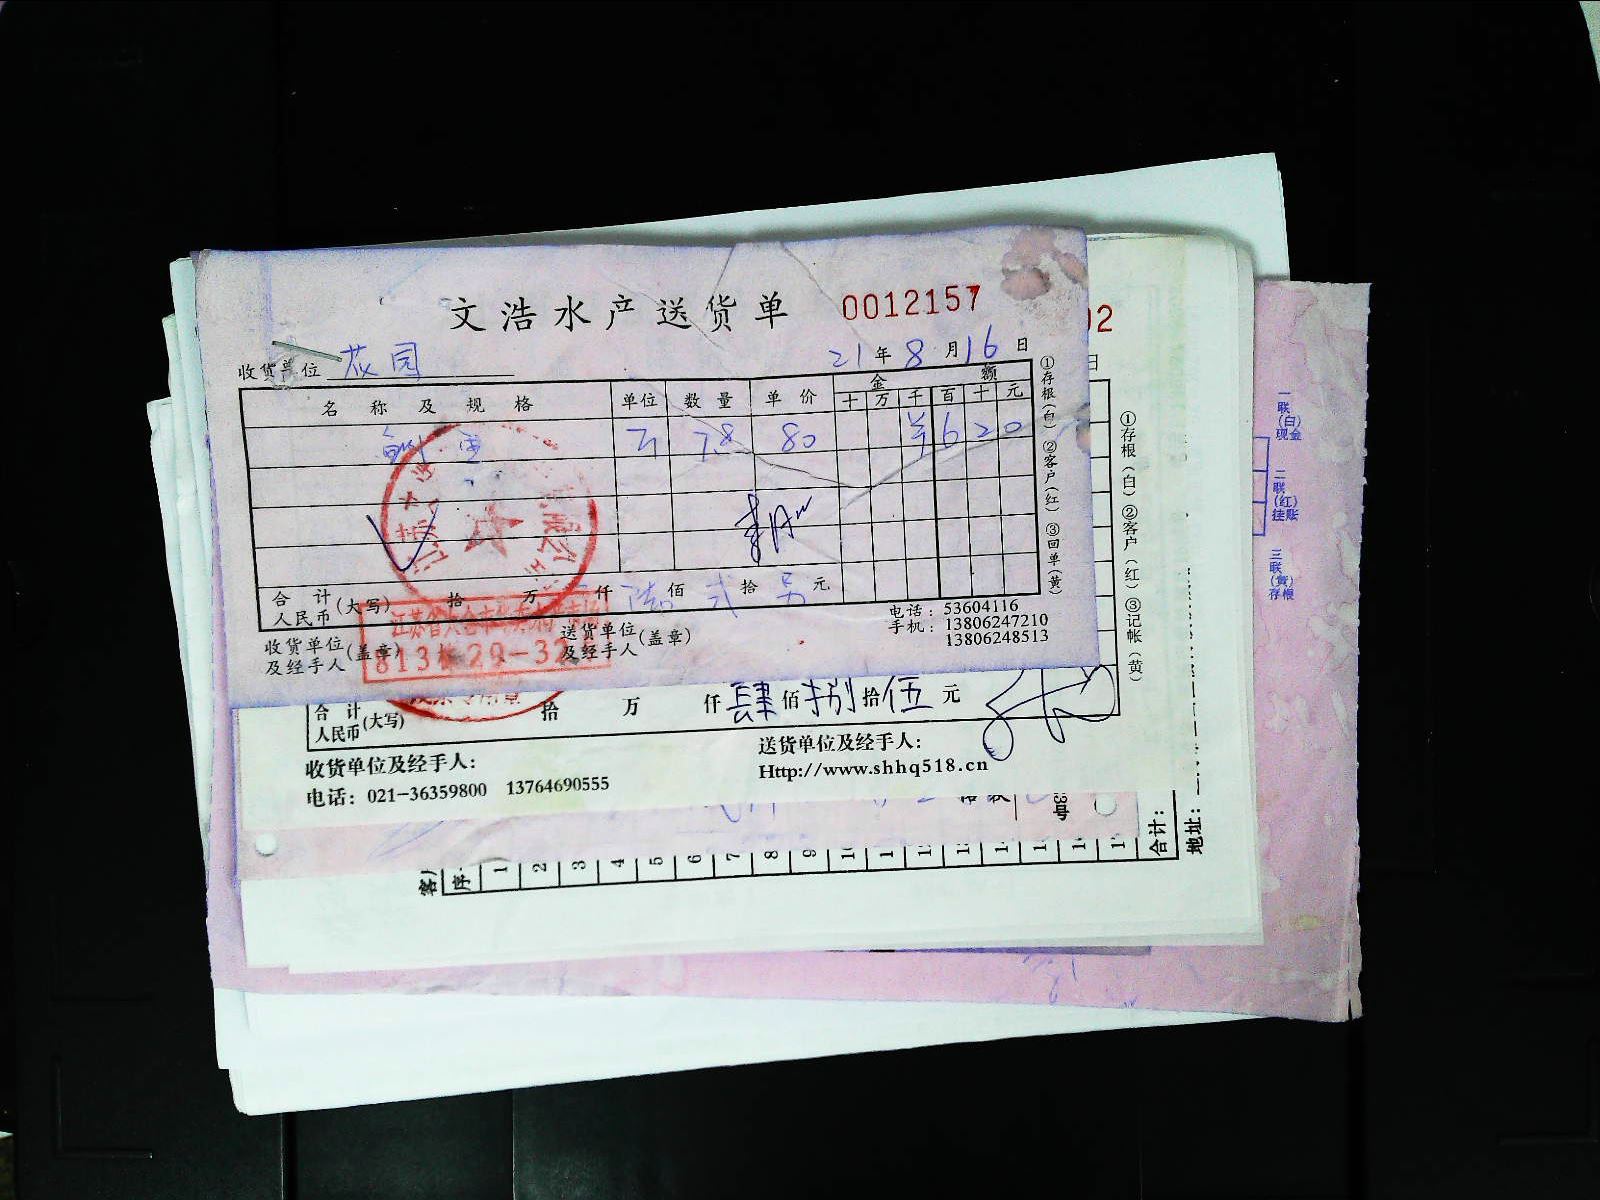 文浩水产送货单 0012157
收货单位 花园 21年8月16日
名称及规格 单位 数量 单价 金额
十 万 千 百 十 元
斤 7.8 80 ¥ 6 2 0
合计人民币(大写) 拾 万 仟 陆佰 贰拾 另元
收货单位及经手人(盖章) 送货单位及经手人(盖章)
电话:53604116
手机:13806247210
13806248513
①存根(白) ②客户(红) ③回单(黄)
813栋29-32
02
日
①存根(白) ②客户(红) ③记帐(黄)
合计人民币(大写) 拾 万 仟 肆佰 捌拾 伍元
收货单位及经手人:
送货单位及经手人:
电话:021-36359800 13764690555
Http://www.shhq518.cn
序
1 2 3 4 5 6 7 8 9
合计:
地址:
一联(白)现金
二联(红)挂账
三联(黄)存根